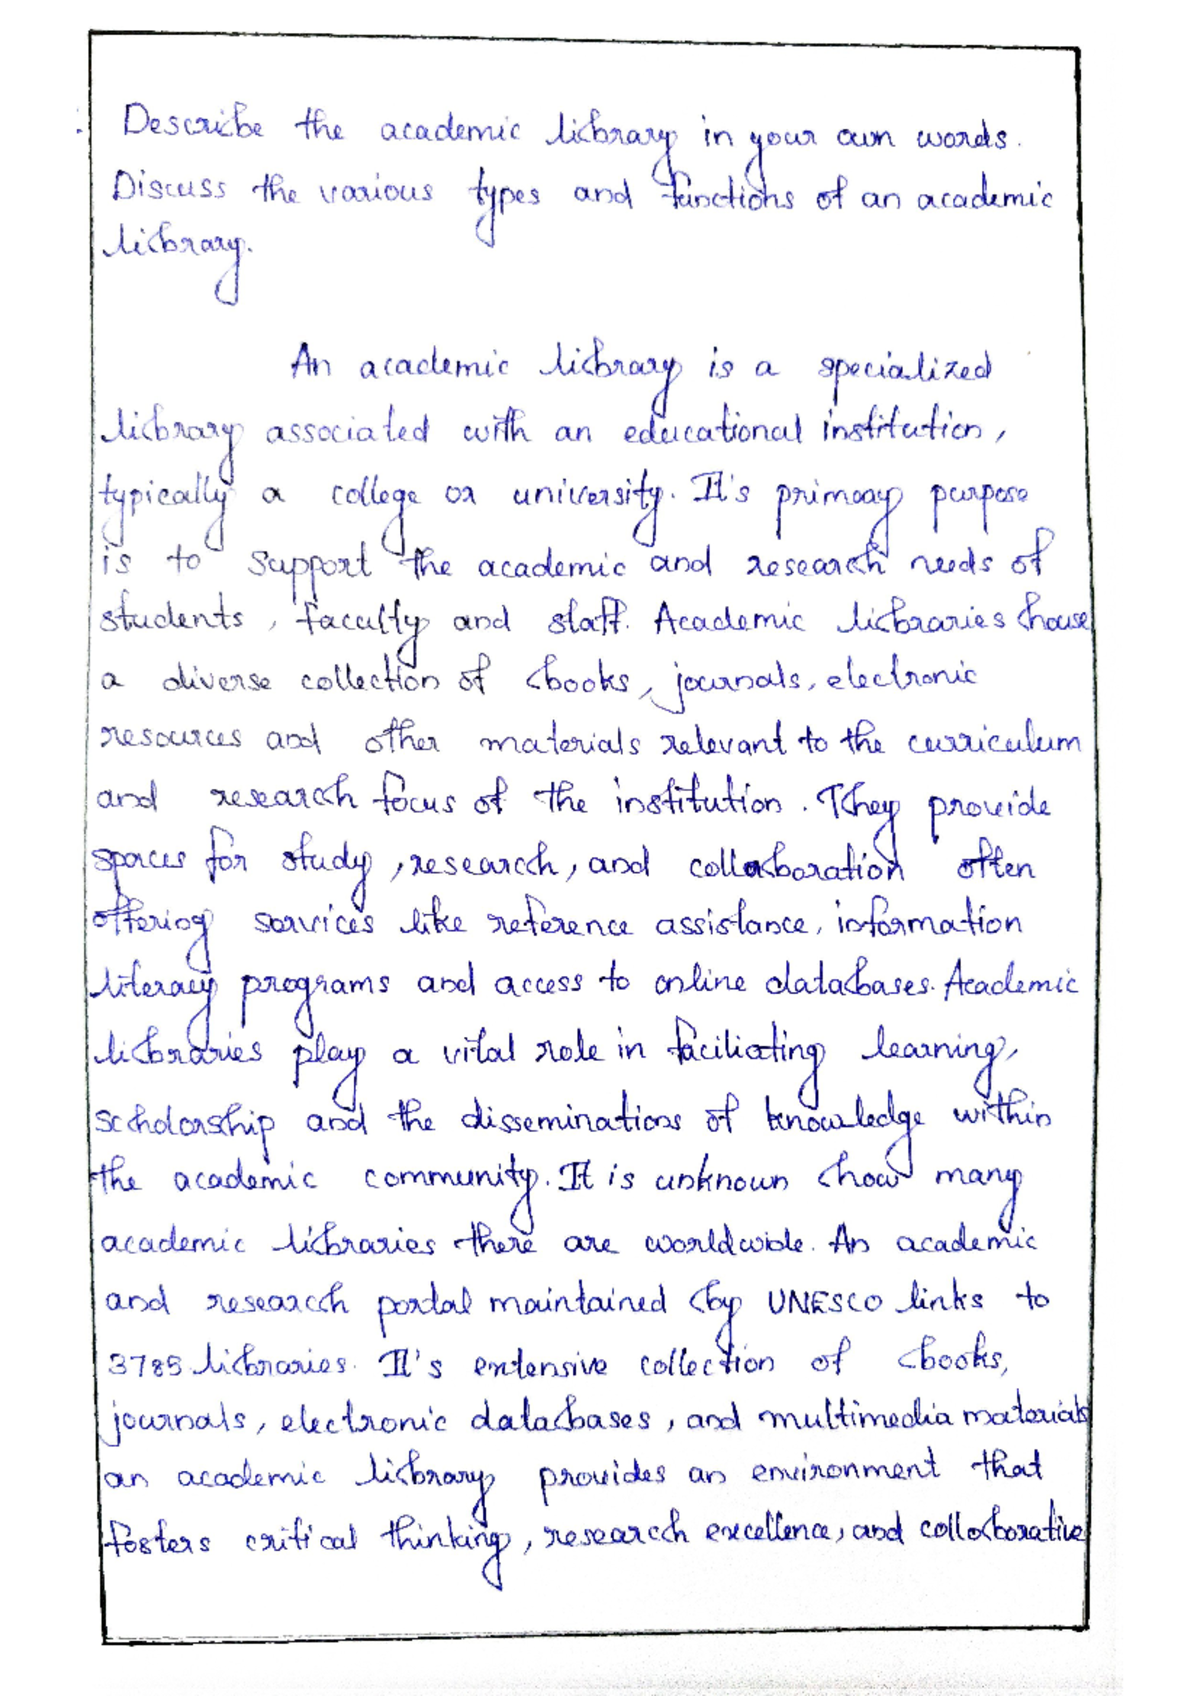 Describe the academic library in your own words.
Discuss the various types and functions of an academic
library.
An academic library is a specialized
library associated with an educational institution,
typically a college or university. It's primary purpose
is to support the academic and research needs of
students, faculty and staff. Academic libraries house
a diverse collection of books, journals, electronic
resources and other materials relevant to the curriculum
and research focus of the institution. They provide
spaces for study, research, and collaboration often
offering services like reference assistance, information
literacy programs and access to online databases. Academic
libraries play a vital role in faciliating learning,
scholarship and the disseminations of knowledge within
the academic community. It is unknown how many
academic libraries there are worldwide. An academic
and research portal maintained by UNESCO links to
3785 libraries. It's extensive collection of books,
journals, electronic databases, and multimedia materials
an academic library provides an environment that
fosters critical thinking, research excellence, and collaborative